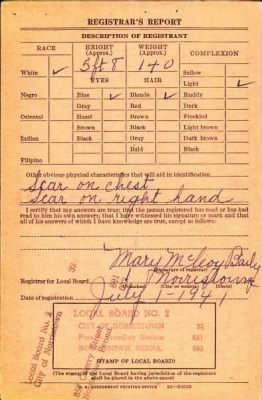 REGISTRAR'S REPORT
DESCRIPTION OF REGISTRANT
RACE HEIGHT (Approx.) WEIGHT (Approx.) COMPLEXION
5 ft 8 140 Sallow
White ✓ EYES HAIR Light ✓
Negro Blue ✓ Blonde ✓ Ruddy
Gray Red Dark
Oriental Hazel Brown Freckled
Brown Black Light brown
Indian Black Gray Dark brown
Bald Black
Filipino
Other obvious physical characteristics that will aid in identification
Scar on chest
Scar on right hand
I certify that my answers are true; that the person registered has read or has had
read to him his own answers; that I have witnessed his signature or mark and that
all of his answers of which I have knowledge are true, except as follows:
Mary McCoy Baily
Signature of registrar
Registrar for Local Board Norristown
Date of registration July 1-1941
LOCAL BOARD NO. 2
CITY OF NORRISTOWN
NORRISTOWN, PENNA.
Local Board No. 2
City of Norristown
STAMP OF LOCAL BOARD
(The stamp of the Local Board having jurisdiction of the registrant
shall be placed in the above space)
U. S. GOVERNMENT PRINTING OFFICE